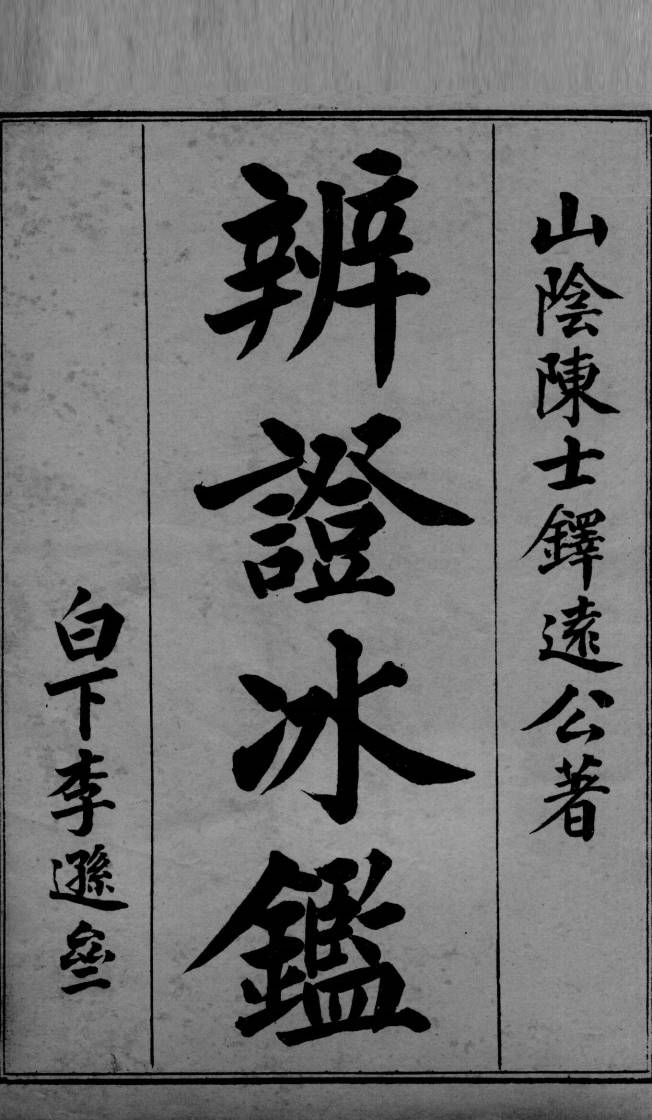 山陰陳士鐸遠公著
辨證冰鑑
白下李遜